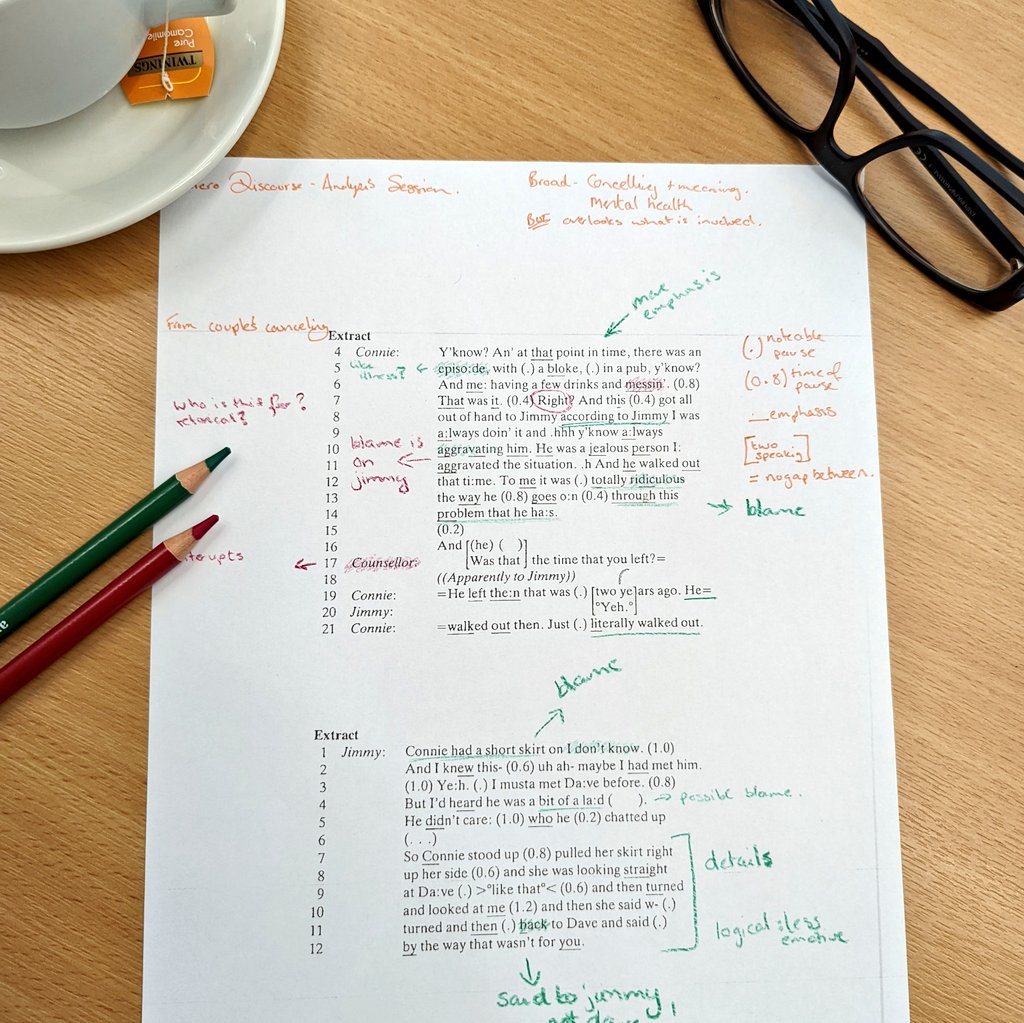 Pure
Camomile
TWININGS
Discourse - Analysis Session.
Broad - Concelling + meaning.
Mental health
BUT overlooks what is involved.
more
emphasis
From couples counceling
Extract
4 Connie: Y'know? An' at that point in time, there was an
5 episo:de, with (.) a bloke, (.) in a pub, y'know?
6 And me: having a few drinks and messin'. (0.8)
7 That was it. (0.4) Right? And this (0.4) got all
8 out of hand to Jimmy according to Jimmy I was
9 a:lways doin' it and .hhh y'know a:lways
10 aggravating him. He was a jealous person I:
11 aggravated the situation. .h And he walked out
12 that ti:me. To me it was (.) totally ridiculous
13 the way he (0.8) goes o:n (0.4) through this
14 problem that he ha:s.
15 (0.2)
16 And [(he) ( )]
17 Counsellor: [Was that] the time that you left?=
18 ((Apparently to Jimmy))
19 Connie: =He left the:n that was (.) [two ye]ars ago. He=
20 Jimmy: [°Yeh.°]
21 Connie: =walked out then. Just (.) literally walked out.
like
illness?
who is this for?
blame is
on
jimmy
(.) noteable
pause
(0.8) time of
pause
_ emphasis
[two
speaking]
= no gap between.
blame
blame
Extract
1 Jimmy: Connie had a short skirt on I don't know. (1.0)
2 And I knew this- (0.6) uh ah- maybe I had met him.
3 (1.0) Ye:h. (.) I musta met Da:ve before. (0.8)
4 But I'd heard he was a bit of a la:d ( ). → possible blame.
5 He didn't care: (1.0) who he (0.2) chatted up
6 (. . .)
7 So Connie stood up (0.8) pulled her skirt right
8 up her side (0.6) and she was looking straight
9 at Da:ve (.) >°like that°< (0.6) and then turned
10 and looked at me (1.2) and then she said w- (.)
11 turned and then (.) back to Dave and said (.)
12 by the way that wasn't for you.
details
logical : less
emotive
said to jimmy,